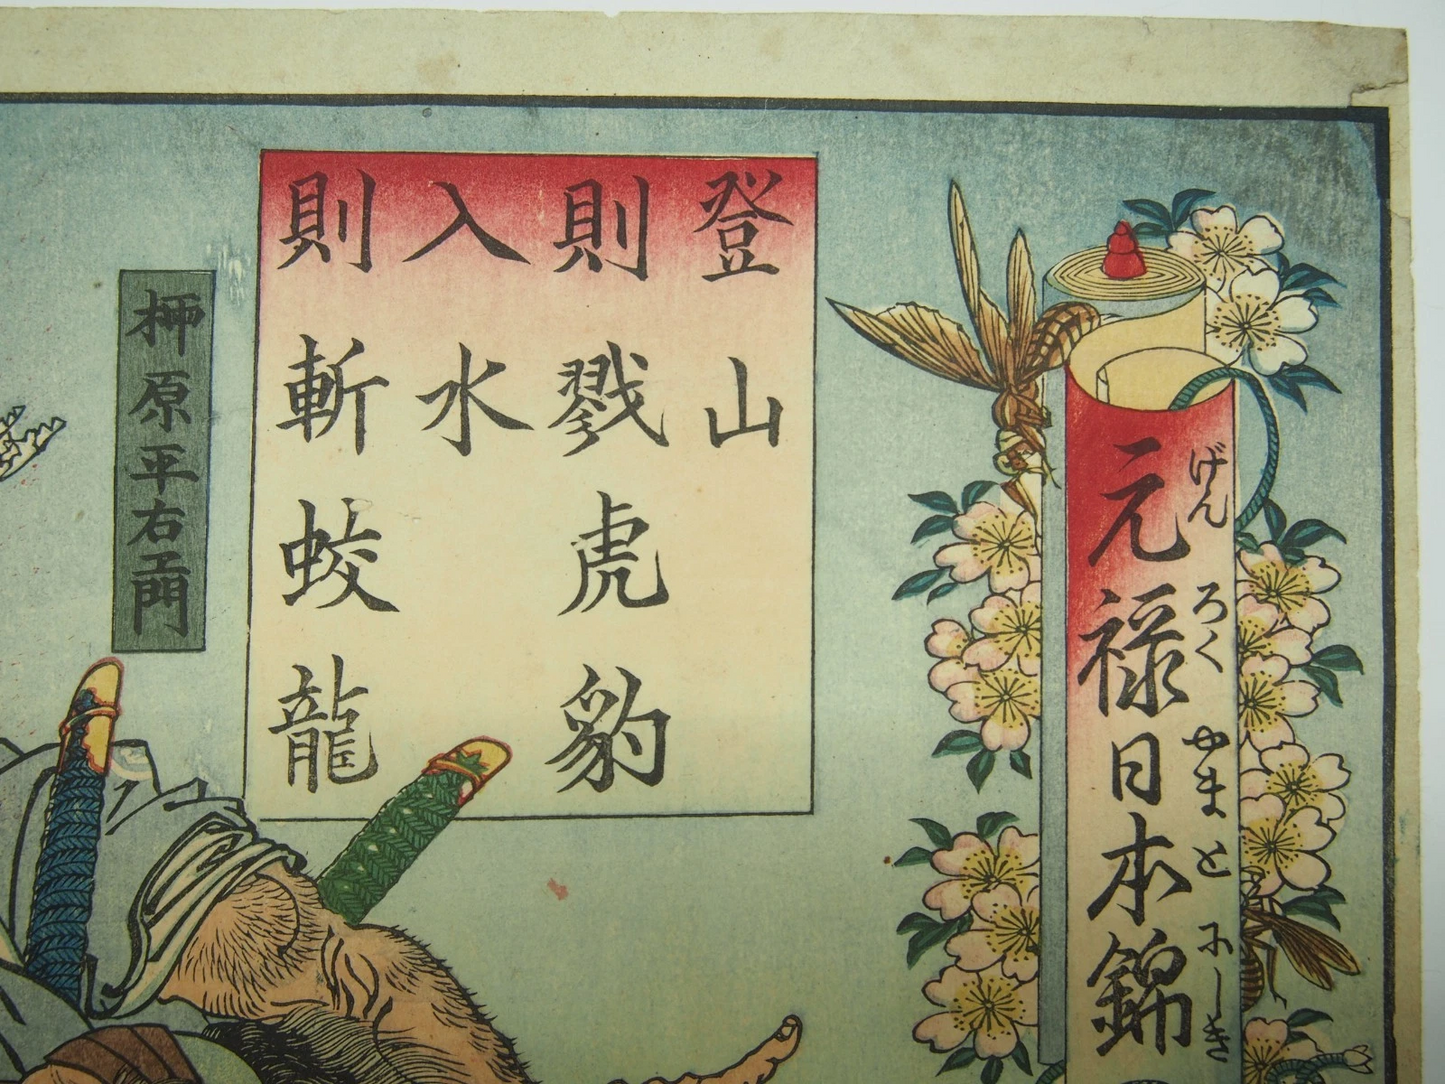 元禄日本錦
げんろくやまとにしき
登山
則戮虎豹
入水
則斬蛟龍
柳原平右エ門